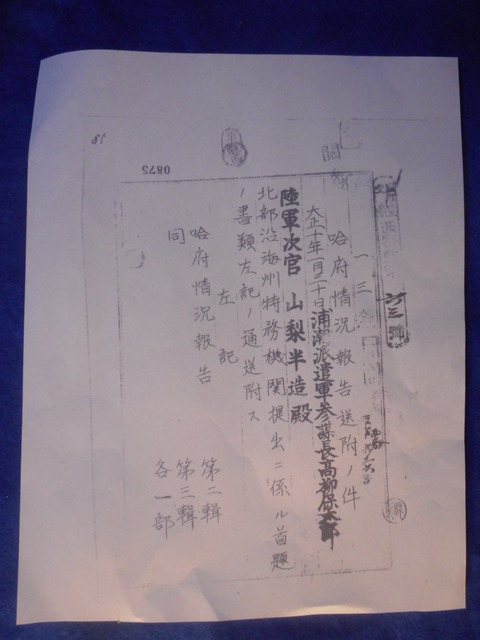 哈府情況報告送附ノ件
大正十年一月三十日浦潮派遣軍参謀長高柳保太郎
陸軍次官 山梨半造殿
北部沿海州特務機関提出ニ係ル首題
ノ書類左記ノ通送附ス
左記
哈府情況報告 第二輯
同 第三輯
各一部
0875
18